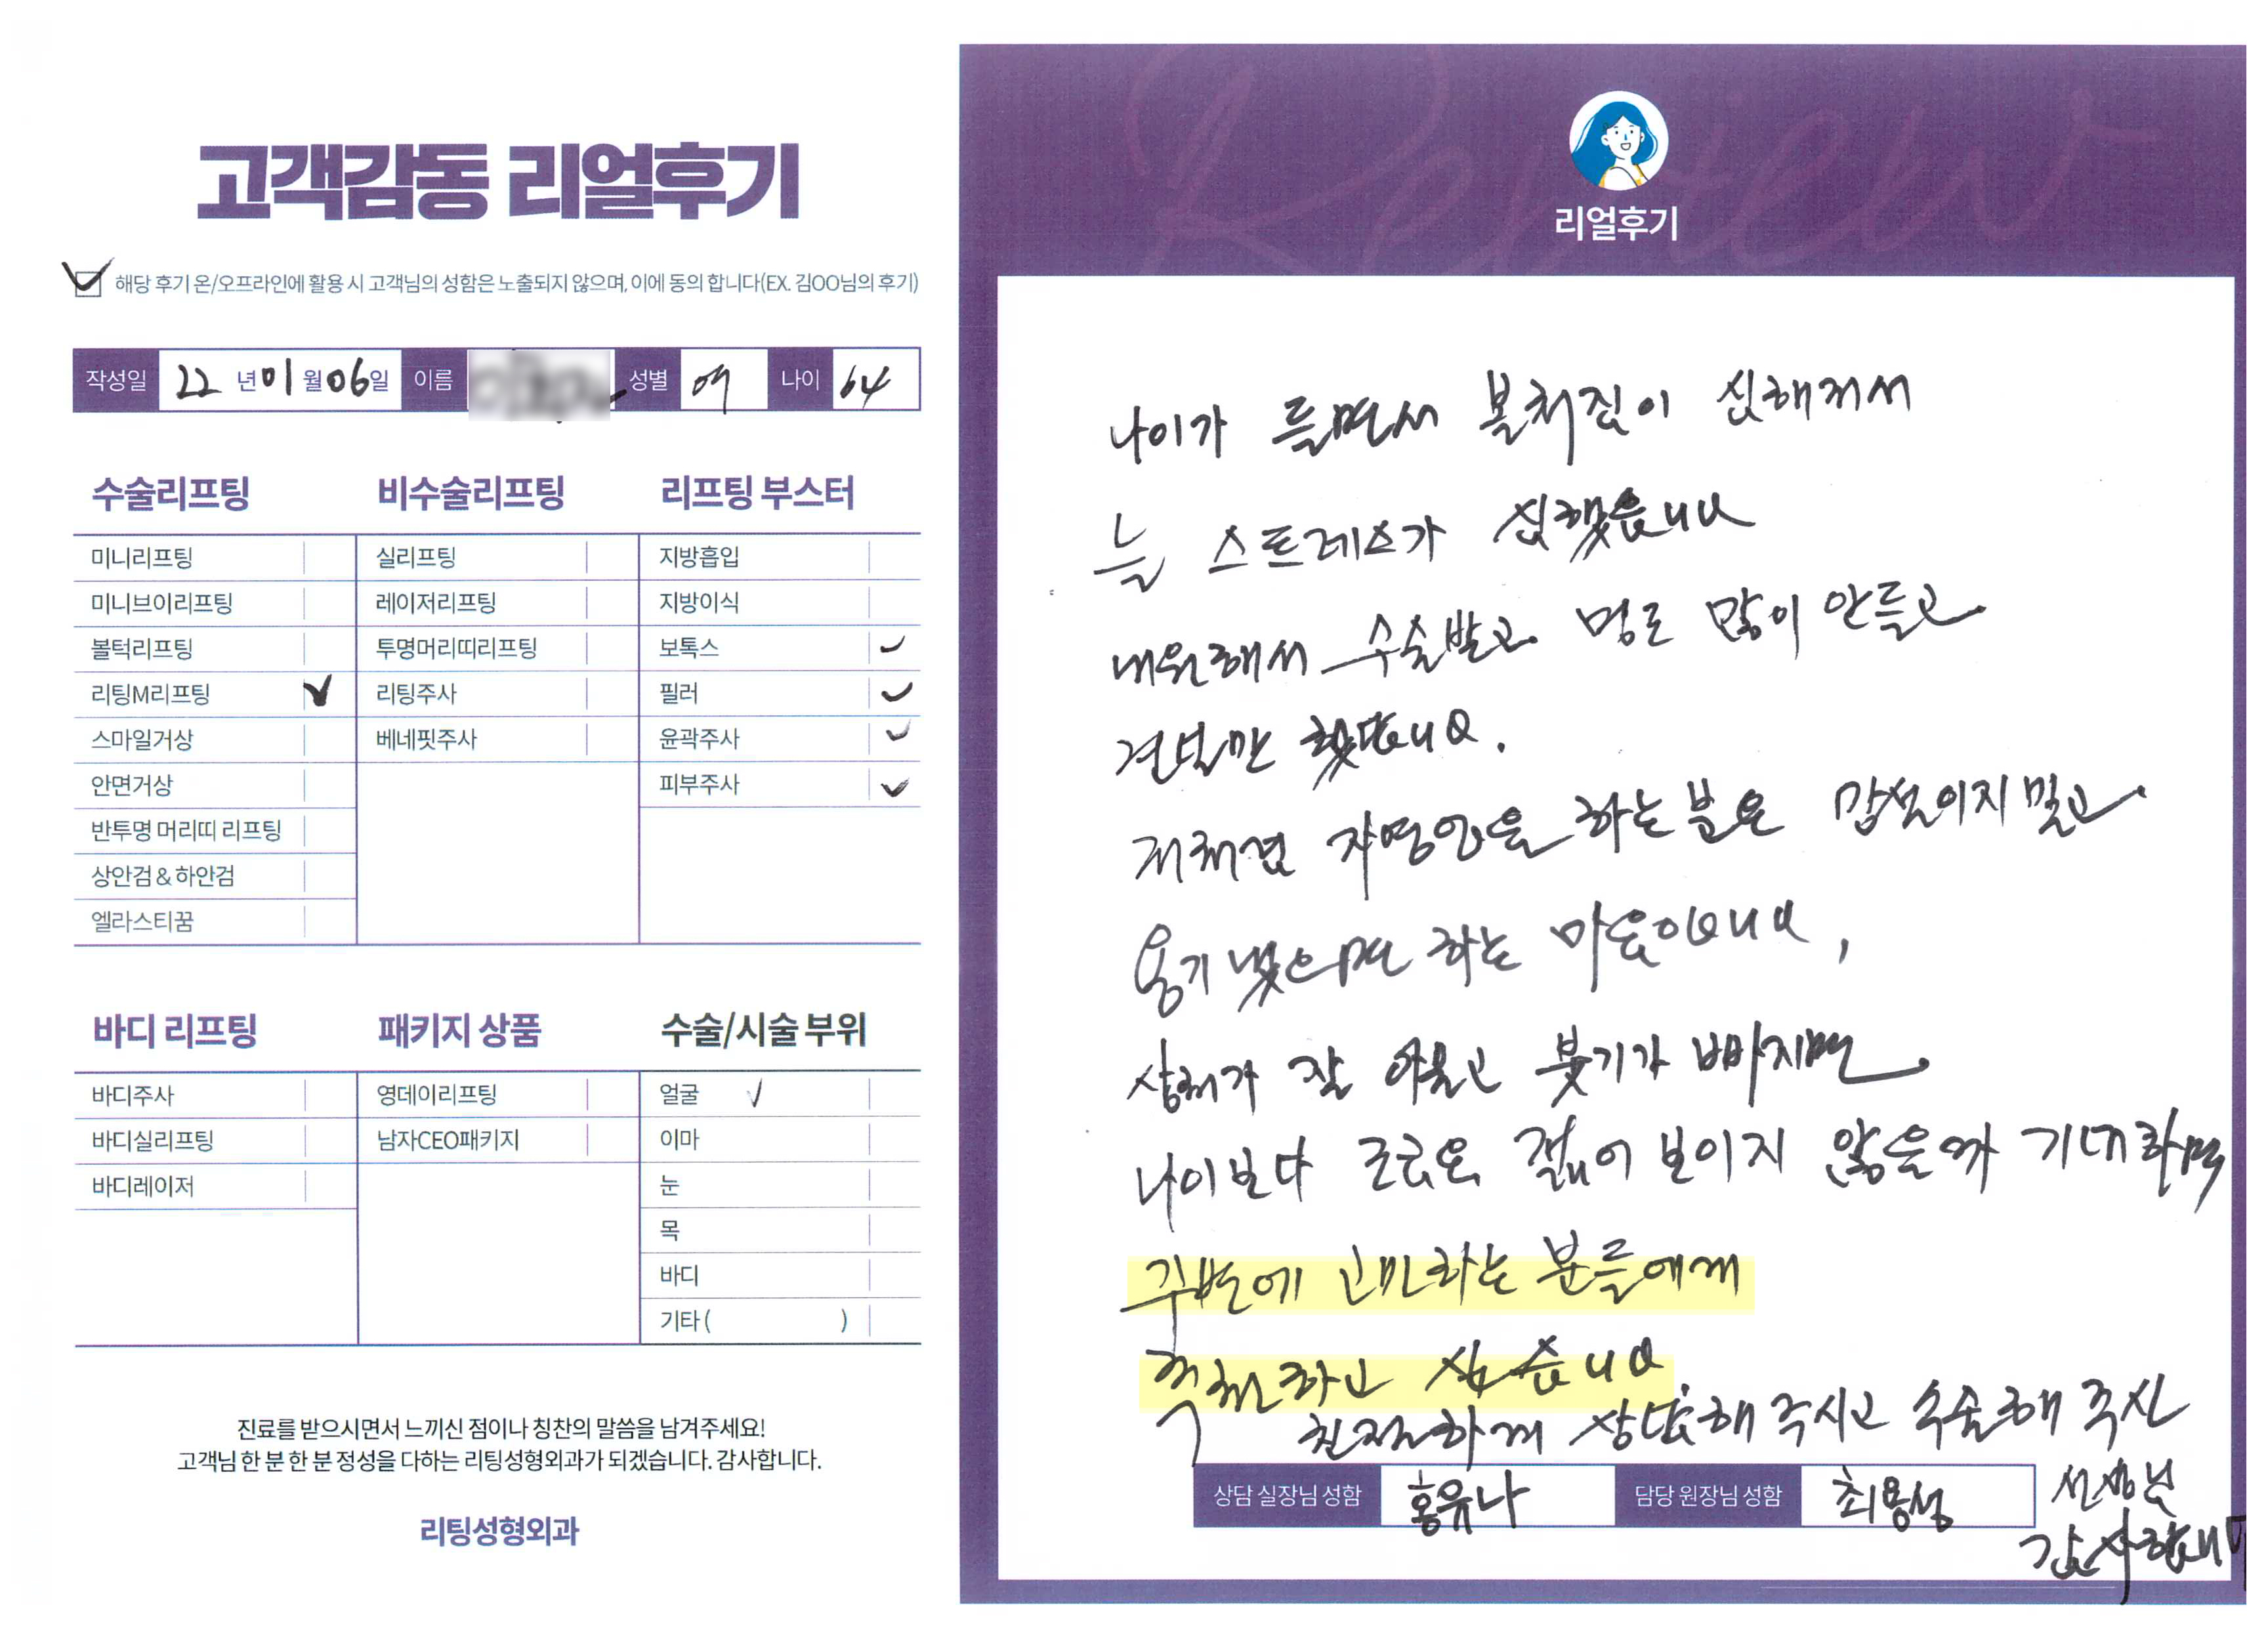 고객감동 리얼후기
해당 후기 온/오프라인에 활용 시 고객님의 성함은 노출되지 않으며, 이에 동의 합니다(EX. 김OO님의 후기)
작성일 22 년 01 월 06 일 이름 성별 여 나이 64
수술리프팅
미니리프팅
미니브이리프팅
볼턱리프팅
리팅M리프팅
스마일거상
안면거상
반투명 머리띠 리프팅
상안검 & 하안검
엘라스티꿈
비수술리프팅
실리프팅
레이저리프팅
투명머리띠리프팅
리팅주사
베네핏주사
리프팅 부스터
지방흡입
지방이식
보톡스
필러
윤곽주사
피부주사
바디 리프팅
바디주사
바디실리프팅
바디레이저
패키지 상품
영데이리프팅
남자CEO패키지
수술/시술 부위
얼굴
이마
눈
목
바디
기타 ( )
진료를 받으시면서 느끼신 점이나 칭찬의 말씀을 남겨주세요!
고객님 한 분 한 분 정성을 다하는 리팅성형외과가 되겠습니다. 감사합니다.
리팅성형외과
Review
리얼후기
나이가 들면서 볼처짐이 심해져서
늘 스트레스가 심했읍니다
내원해서 수술받고 멍도 많이 안들고
견딜만 했답니다.
저처럼 자영업을 하는분은 망설이지말고
용기냈으면 하는 마음입니다,
상처가 잘 아물고 붓기가 빠지면
나이보다 조금은 젊어 보이지 않을까 기대하며
주변에 고민하는 분들에게
추천하고 싶습니다
친절하게 상담해 주시고 수술해 주신
선생님
감사합니다
상담 실장님 성함 홍유나 담당 원장님 성함 최용성